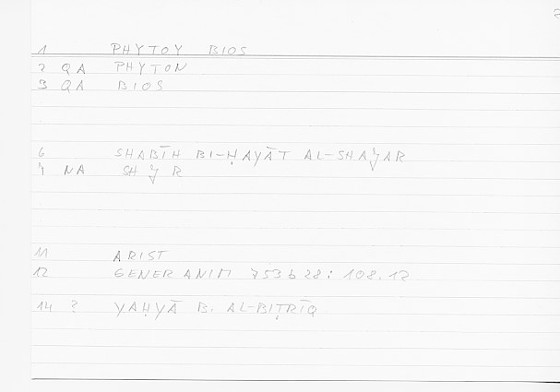 1 PHYTOY BIOS
2 QA PHYTON
3 QA BIOS
6 SHABĪH BI-ḤAYĀT AL-SHAǦAR
7 NA SH Ǧ R
11 ARIST
12 GENER ANIM 753 b 28: 108.12
14 ? YAḤYĀ B. AL-BIṬRĪQ